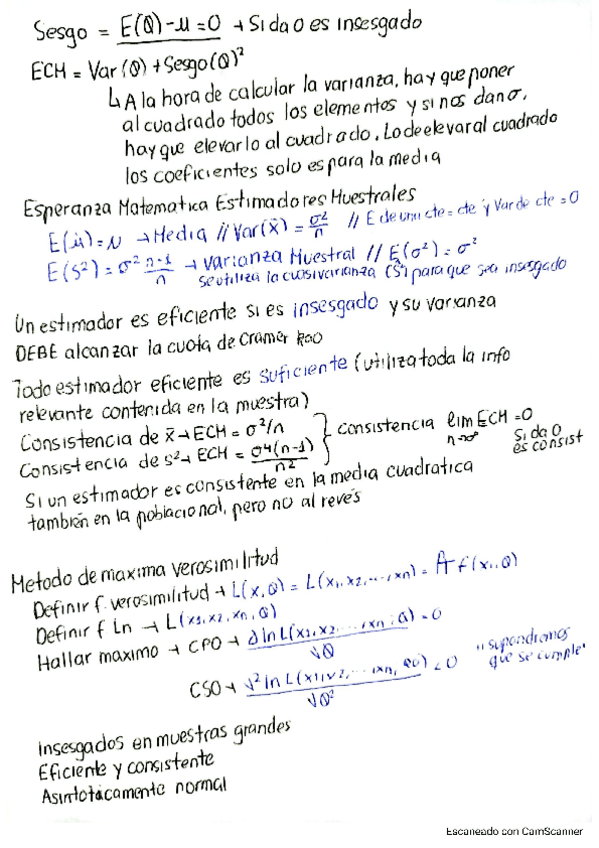 Sesgo = E(θ) - μ = 0 → Si da 0 es insesgado
ECM = Var(θ) + Sesgo(θ)²
↳ A la hora de calcular la varianza, hay que poner
al cuadrado todos los elementos y si nos dan σ,
hay que elevarlo al cuadrado. Lo de elevar al cuadrado
los coeficientes solo es para la media
Esperanza Matematica Estimadores Muestrales
E(û) = μ → Media // Var(x̄) = σ²/n // E de una cte = cte y Var de cte = 0
E(S²) = σ² n-1/n → varianza Muestral // E(σ²) = σ²
se utiliza la cuasivarianza (S²) para que sea insesgado
Un estimador es eficiente si es insesgado y su varianza
DEBE alcanzar la cuota de Cramer Rao
Todo estimador eficiente es suficiente (utiliza toda la info
relevante contenida en la muestra)
Consistencia de x̄ → ECM = σ²/n
Consistencia de s² → ECM = σ4(n-1)/n²
} consistencia lim ECM = 0
n→∞
Si da 0
es consist
Si un estimador es consistente en la media cuadratica
también en la poblacional, pero no al revés
Metodo de maxima verosimilitud
Definir f. verosimilitud → L(x, θ) = L(x1, x2, ..., xn) = f(x1, θ)
Definir f Ln → L(x1, x2, xn, θ)
Hallar maximo → CPO → ∂ ln L(x1, x2, ..., xn; θ)/∂θ = 0
CSO → ∂² ln L(x1, x2, ... xn, θ)/∂θ² < 0
"supondremos
que se cumple"
Insesgados en muestras grandes
Eficiente y consistente
Asintoticamente normal
Escaneado con CamScanner